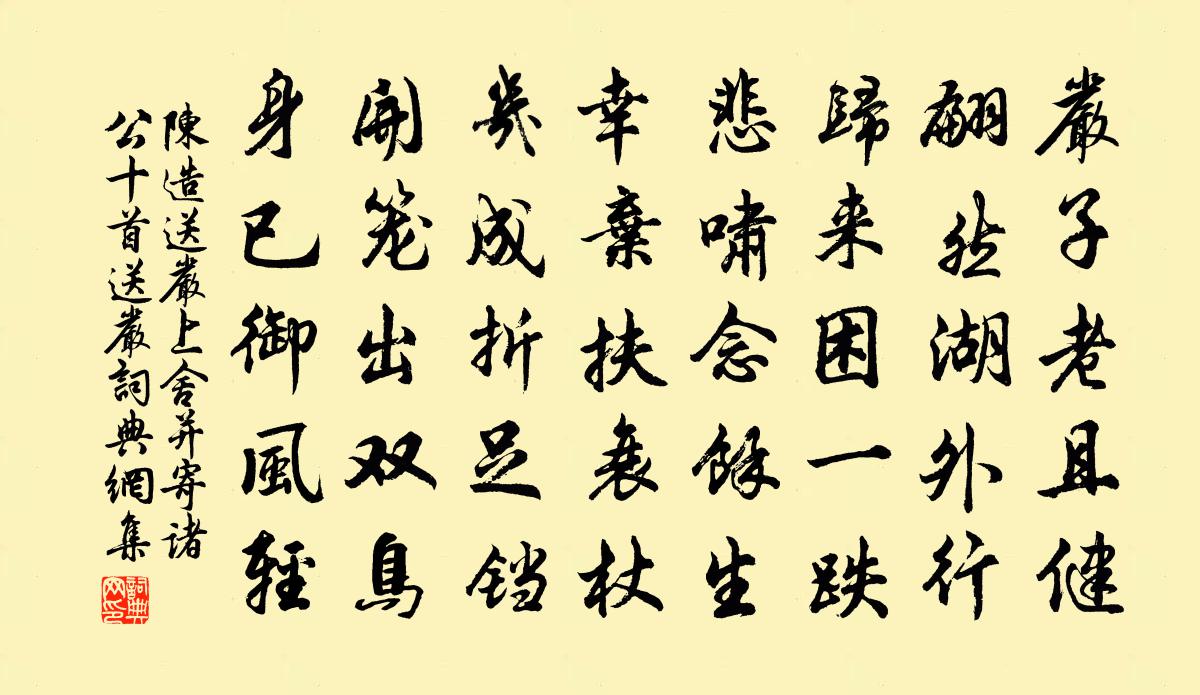 嚴子老且健
翩然湖外行
歸来困一跌
悲嘯念餘生
幸棄扶衰杖
幾成折足铛
開笼出双鳥
身已御風輕
陳造送嚴上舍并寄諸
公十首送嚴詞典網集
詞典
网印